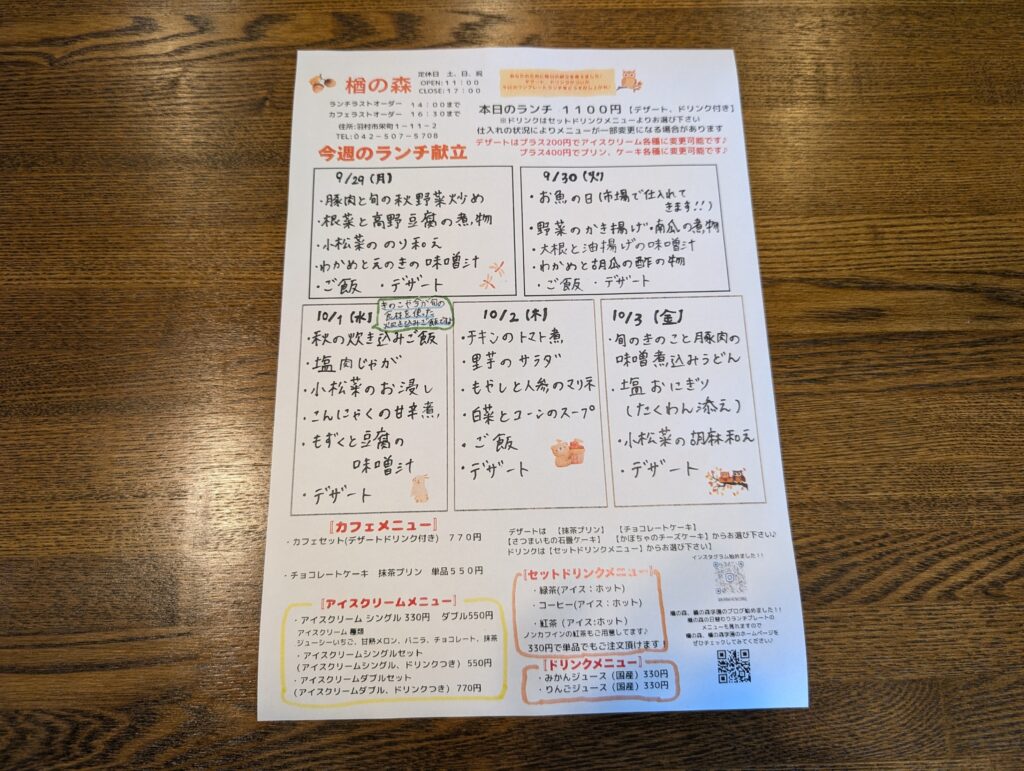 楢の森
定休日 土、日、祝
OPEN:11:00
CLOSE:17:00
ランチラストオーダー 14:00まで
カフェラストオーダー 16:30まで
住所:羽村市栄町1-11-2
TEL:042-507-5708
本日のランチ 1100円 【デザート、ドリンク付き】
※ドリンクはセットドリンクメニューよりお選び下さい
仕入れの状況によりメニューが一部変更になる場合があります
デザートはプラス200円でアイスクリーム各種に変更可能です♪
プラス400円でプリン、ケーキ各種に変更可能です♪
今週のランチ献立
9/29(月)
・豚肉と旬の秋野菜炒め
・根菜と高野豆腐の煮物
・小松菜ののり和え
・わかめとえのきの味噌汁
・ご飯 ・デザート
9/30(火)
・お魚の日(市場で仕入れて
きます!!)
・野菜のかき揚げ・南瓜の煮物
・大根と油揚げの味噌汁
・わかめと胡瓜の酢の物
・ご飯 ・デザート
10/1(水)
きのこや今が旬の
食材を使った
炊き込みご飯です♪
・秋の炊き込みご飯
・塩肉じゃが
・小松菜のお浸し
・こんにゃくの甘辛煮
・もずくと豆腐の
味噌汁
・デザート
10/2(木)
・チキンのトマト煮
・里芋のサラダ
・もやしと人参のマリネ
・白菜とコーンのスープ
・ご飯
・デザート
10/3(金)
・旬のきのこと豚肉の
味噌煮込みうどん
・塩おにぎり
(たくわん添え)
・小松菜の胡麻和え
・デザート
『カフェメニュー』
・カフェセット(デザートドリンク付き) 770円
・チョコレートケーキ 抹茶プリン 単品550円
デザートは 【抹茶プリン】 【チョコレートケーキ】
【さつまいもの石畳ケーキ】 【かぼちゃのチーズケーキ】からお選び下さい♪
ドリンクは【セットドリンクメニュー】からお選び下さい】
『アイスクリームメニュー』
・アイスクリーム シングル330円 ダブル550円
アイスクリーム種類
ジューシーいちご、甘熟メロン、バニラ、チョコレート、抹茶
・アイスクリームシングルセット
(アイスクリームシングル、ドリンクつき) 550円
・アイスクリームダブルセット
(アイスクリームダブル、ドリンクつき) 770円
『セットドリンクメニュー』
・緑茶(アイス:ホット)
・コーヒー(アイス:ホット)
・紅茶(アイス:ホット)
ノンカフェインの紅茶もご用意してます♪
330円で単品でもご注文頂けます!
『ドリンクメニュー』
・みかんジュース(国産)330円
・りんごジュース(国産)330円
インスタグラム始めました!!
楢の森、楢の森学園のブログ始めました!!
楢の森の日替わりランチプレートの
メニューも見れますので
楢の森、楢の森学園のホームページを
ぜひチェックしてみてください♪